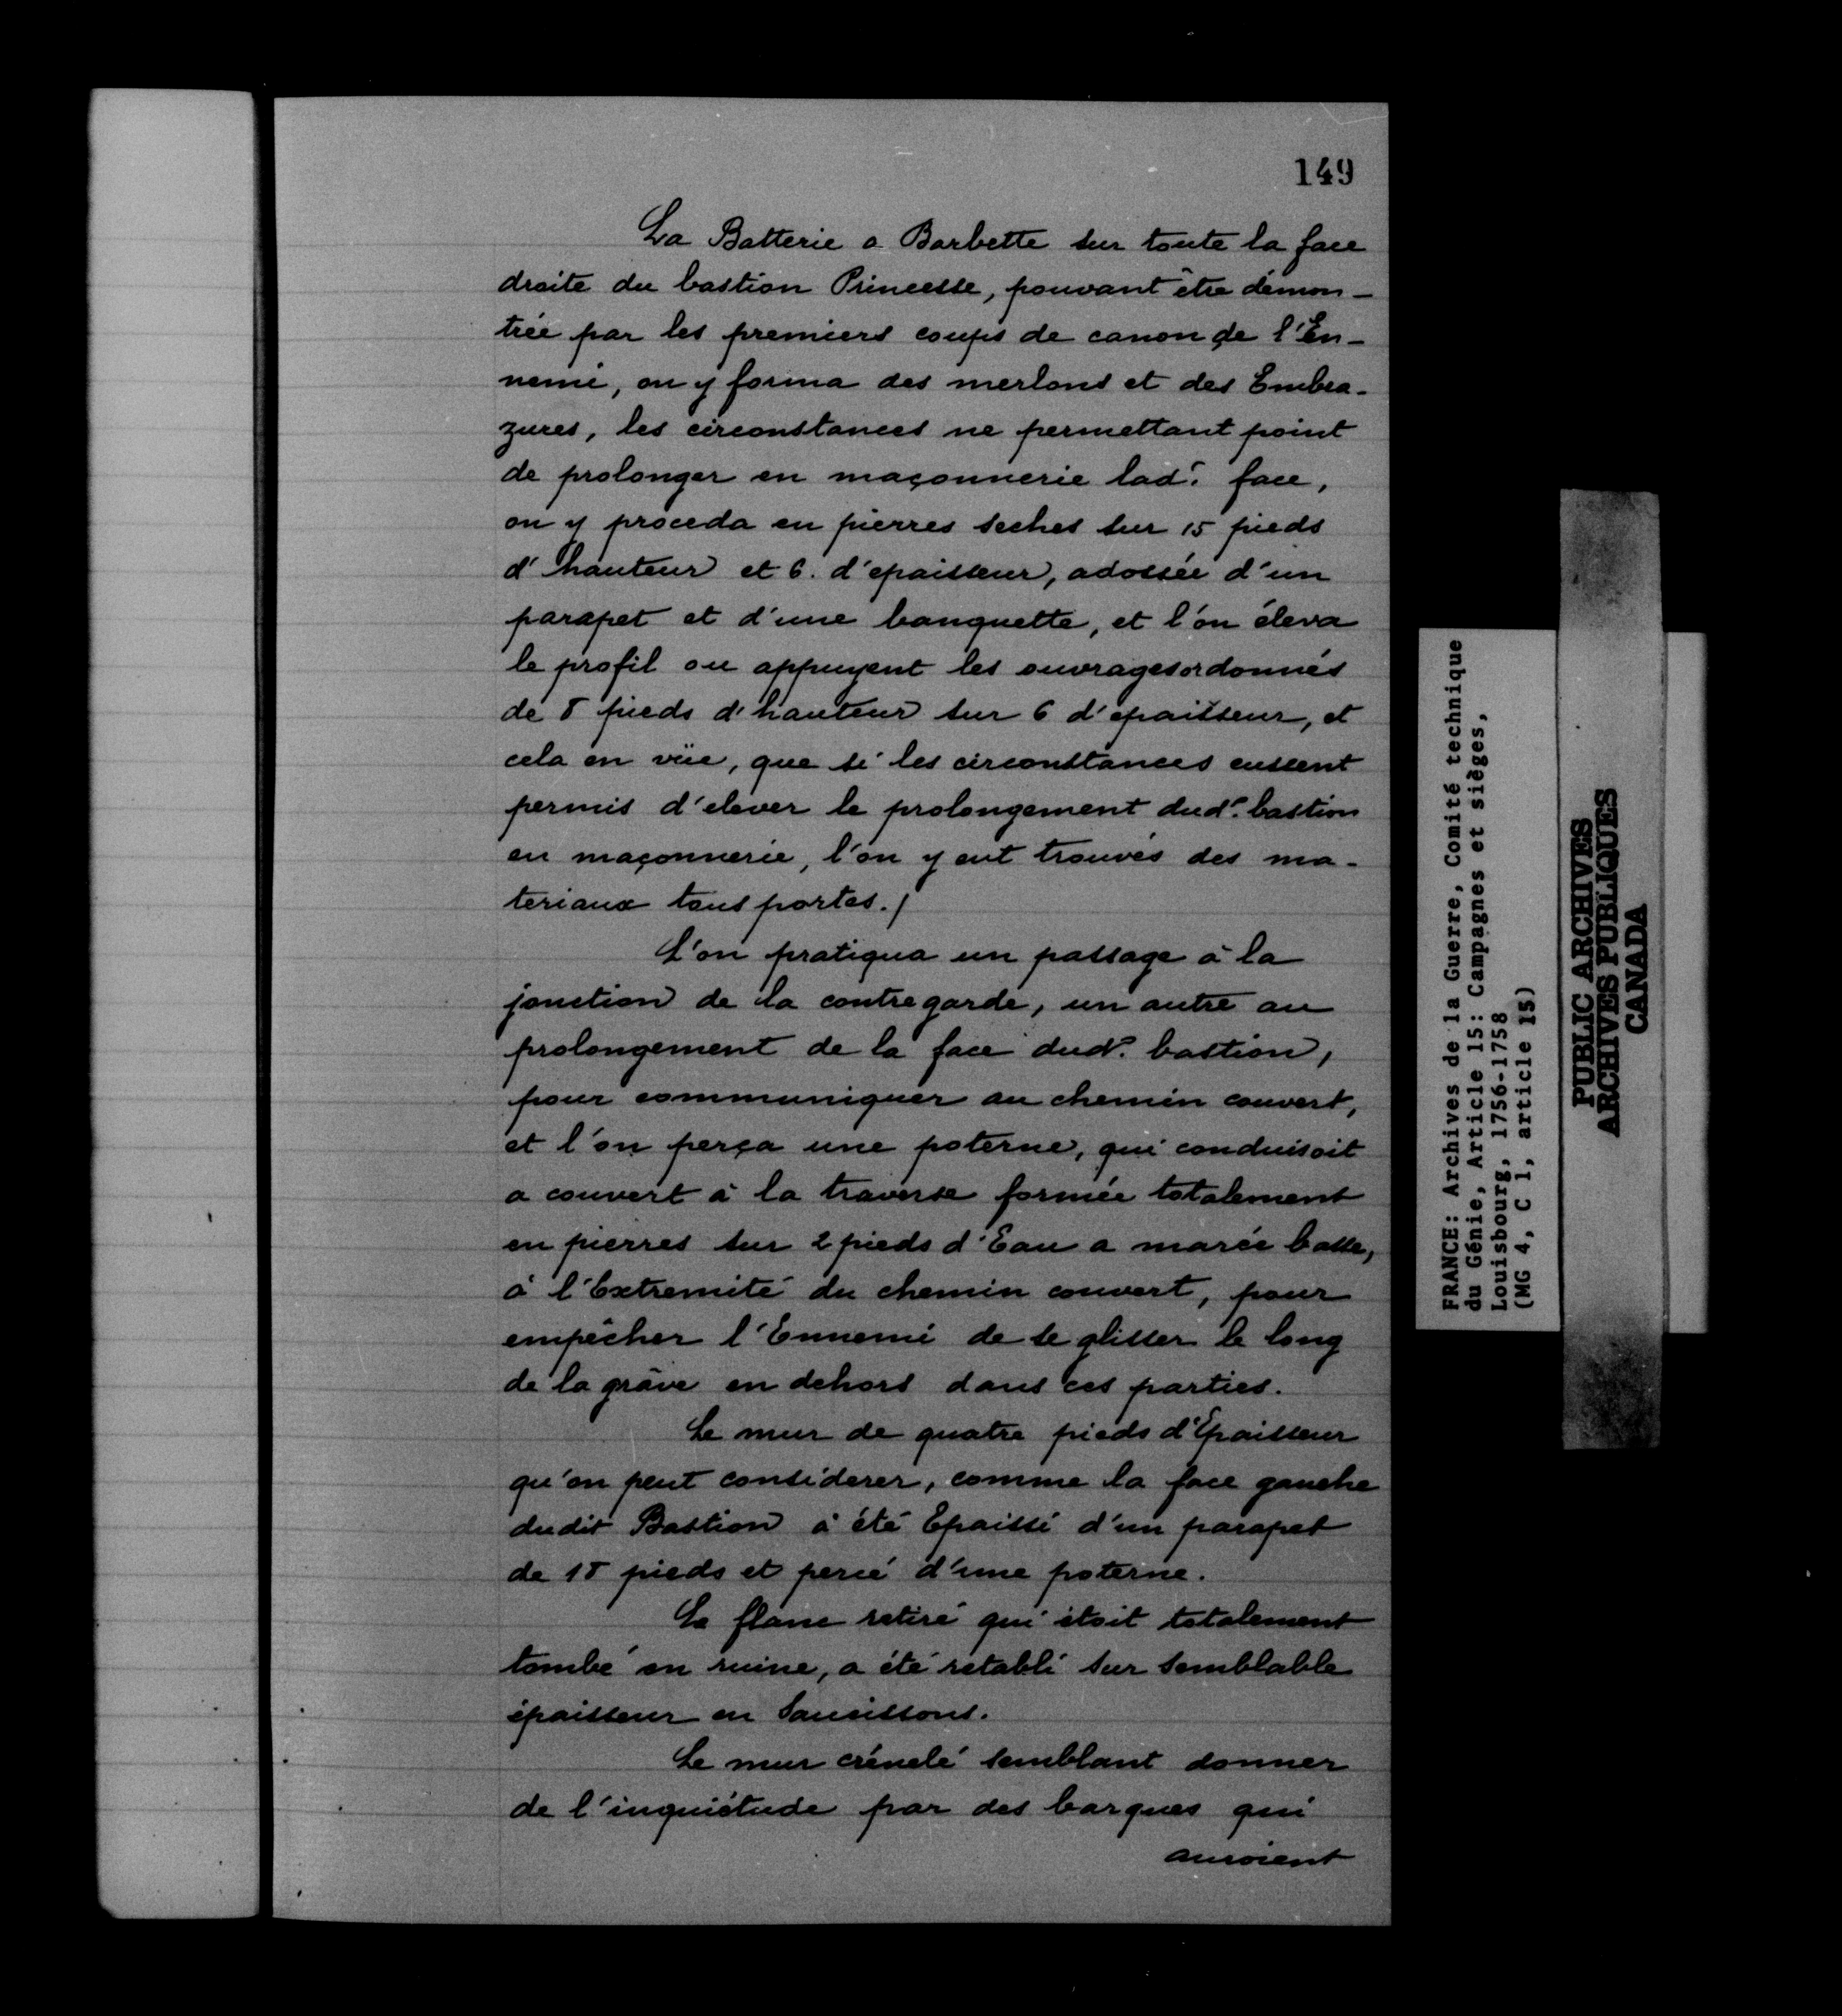 149
La Batterie a Barbette sur toute la face
droite du bastion Princesse, pouvant être démon-
trée par les premiers coups de canon de l'En-
nemi, on y forma des merlons et des Embra-
zures, les circonstances ne permettant point
de prolonger en maçonnerie lad.e face,
on y proceda en pierres seches sur 15 pieds
d'hauteur et 6. d'epaisseur, adossée d'un
parapet et d'une banquette, et l'on éleva
le profil ou appuyent les ouvrages ordonnés
de 8 pieds d'hauteur sur 6 d'epaisseur, et
cela en vüe, que si les circonstances eussent
permis d'elever le prolongement dud.t bastion
en maçonnerie, l'on y eut trouvés des ma-
teriaux tous portes./
L'on pratiqua un passage à la
jonction de la contregarde, un autre au
prolongement de la face dud.t bastion,
pour communiquer au chemin couvert,
et l'on perça une poterne, qui conduisoit
a couvert à la traverse formée totalement
en pierres sur 2 pieds d'Eau a marée basse,
à l'Extremité du chemin couvert, pour
empêcher l'Ennemi de se glisser le long
de la grâve en dehors dans ces parties.
Le mur de quatre pieds d'Epaisseur
qu'on peut considerer, comme la face gauche
dudit Bastion à été Epaissi d'un parapet
de 18 pieds et percé d'une poterne.
Le flanc retiré qui étoit totalement
tombé en ruine, a été rétabli sur semblable
épaisseur en Saucissons.
Le mur crénelé semblant donner
de l'inquiétude par des barques qui
auroient
FRANCE: Archives de la Guerre, Comité technique
du Génie, Article 15: Campagnes et sièges,
Louisbourg, 1756-1758
(MG 4, C 1, article 15)
PUBLIC ARCHIVES
ARCHIVES PUBLIQUES
CANADA